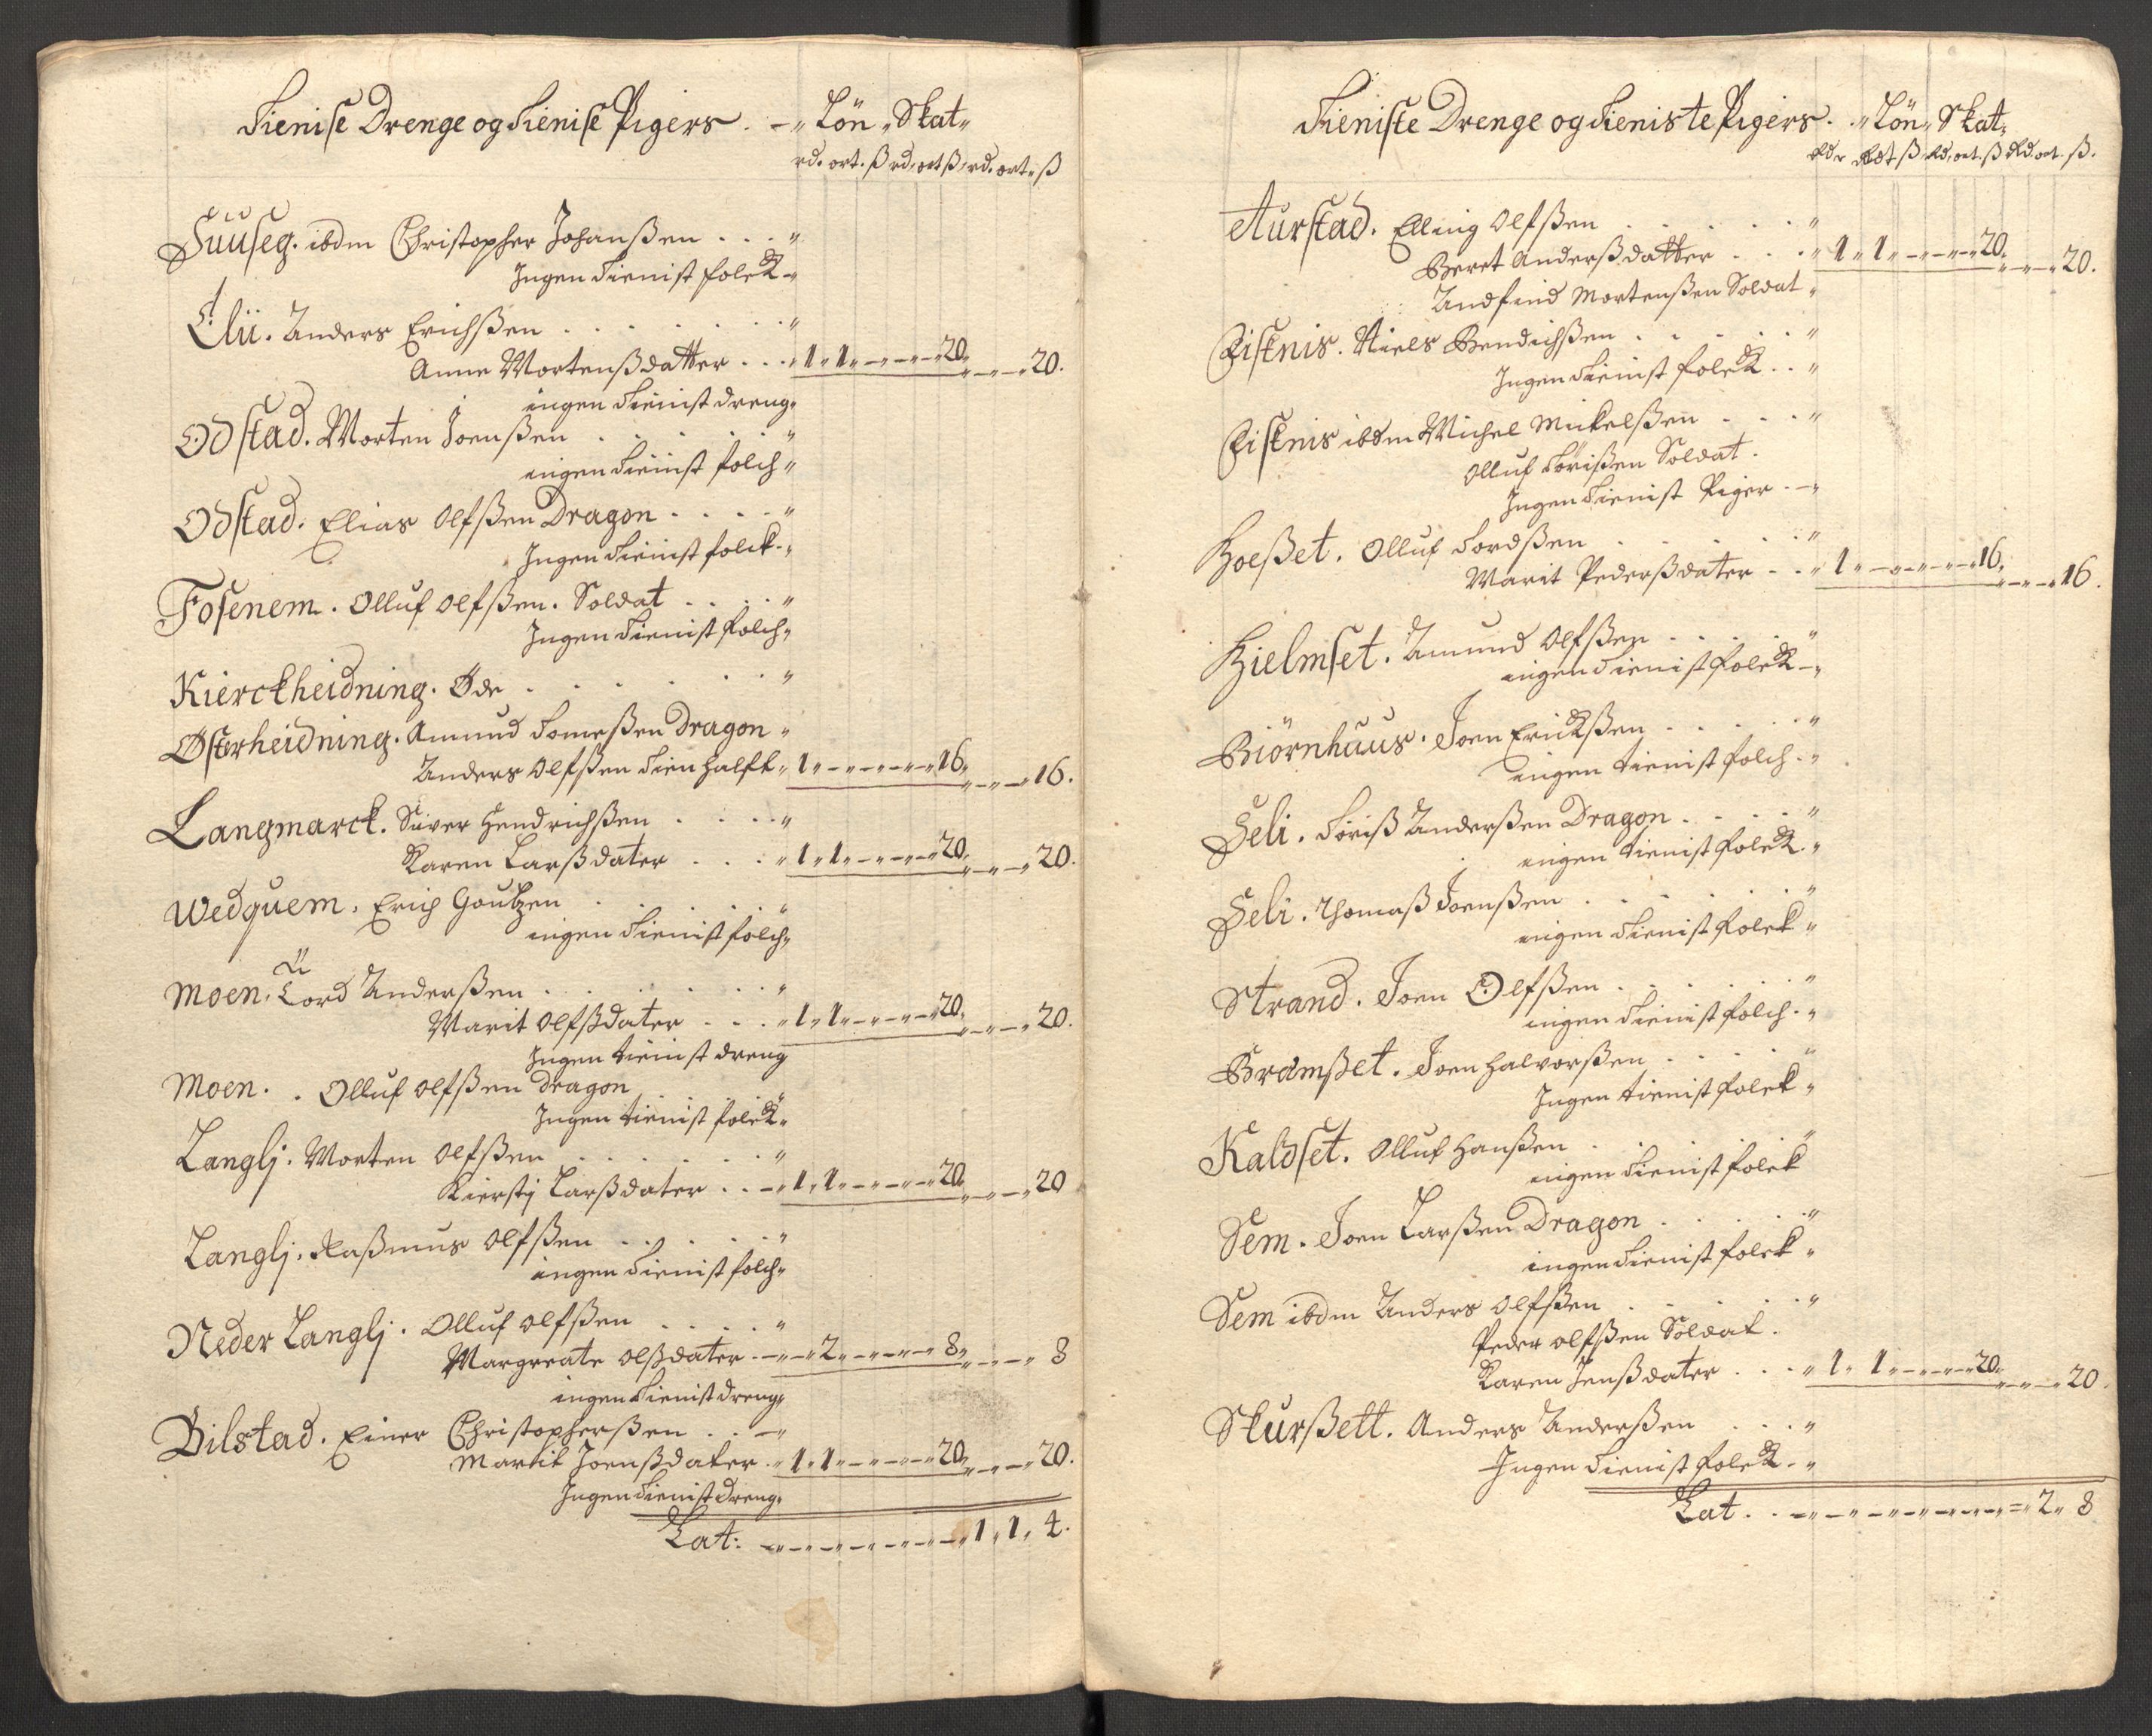 Tieniste Drenge og Tieniste Pigers. -„ Lön „ Skat„
rd. ort. ß rd. ort ß rd. ort. ß
Suuseg. ibdm Christopher Johanßen . . . „
Ingen Tienist folck -„
Elii. Anders Erichßen . . . . . . „
Anne Mortenßdatter . . . „ 1„ 1„ -„-„-„ 20„ „-„-„ 20.
ingen Tienist dreng„
Odstad. Morten Joenßen . . . . . . „
ingen Tienist folch „
Odstad. Elias Olfßen Dragon . . . . „
Ingen Tienist folck. „
Fosenem. Olluf Olfßen. Soldat . . . . „
Ingen Tienist folch„
Kierckheidning. Øde . . . . . . „
Østerheidning. Amund Tomeßen Dragon „
Anders Olfßen Tien halft „ 1„ -„-„-„-„ 16„ „-„-„ 16.
Langmarck. Siver Hendrichßen . . . . „
Karen Larßdater . . . „ 1„ 1„ -„-„-„ 20„ „-„-„ 20.
Wedquem. Erich Goutzen . . . . . „
ingen Tienist folch„
Moen. Tord Anderßen . . . . . . „
Marit Olfßdater . . . „ 1„ 1„ -„-„-„ 20„ „-„-„ 20.
Ingen tienist dreng
Moen. . Olluf Olfßen Dragon . . . „
Ingen tienist folck„
Langlj. Morten Olfßen . . . . . . „
Kierstj Larßdater . . -„ 1„ 1„ -„-„-„ 20„ „-„-„ 20
Langlj. Raßmus Olfßen . . . . . „
ingen Tienist folch„
Neder Langlj. Olluf Olfßen . . . . . „
Margreate Olßdater -„-„ 2„ -„-„-„ 8„ „-„-„ 8
ingen Tienist dreng„
Bilstad. Einer Christopherßen . . -„
Marit Joenßdater. „ 1„ 1„ -„-„-„ 20„ „-„-„ 20.
Ingen Tienist dreng„
Lat: -„-„-„-„-„-„-„ 1„ 1„ 4.
Tieniste Drenge og Tieniste Pigers. . „ Lön „ Skat„
Rd. ort ß Rd. ort. ß Rd. ort. ß.
Aurstad. Elling Olfßen . . . . . . „
Beret Anderßdatter . . . „ 1„ 1„ -„-„-„ 20„ „-„-„ 20.
Andfind Mortenßen Soldat „
Fisknis. Niels Bendichßen . . . . . „
Ingen Tienist folck . . „
Fisknis ibdm Michel Mickelßen . . . „
Olluf Törißen Soldat.
Ingen Tienist Piger. -„
Hoeßet. Olluf Tordßen . . . . . „
Marit Pederßdater . . „ 1„ -„-„-„-„ 16„ „-„-„ 16.
Hielmset. Amund Olfßen . . . . „
ingen Tienist folck -„
Biörnhuus. Joen Erickßen . . . . . „
ingen tienist folch. „
Seli. Töriß Anderßen Dragon . . . . „
ingen tienist folck. „
Seli. Thomaß Joenßen . . . . . . „
ingen Tienist folck „
Strand. Joen Olfßen . . . . . . „
ingen Tienist folch. „
Bramßet. Joen Halvorßen . . . . . „
Ingen tienist folck „
Kaldset. Olluf Hanßen . . . . . . „
ingen Tienist folck
Sem. Joen Larßen Dragon . . . . . „
ingen Tienist folck „
Sem ibdm Anders Olfßen . . . . . . „
Peder Olfßen Soldat.
Karen Jenßdater . . . „ 1„ 1„ -„-„-„ 20„ „-„-„ 20.
Skurßett. Anders Anderßen . . . „
Ingen Tienist folck -„
Lat. . -„-„-„-„-„-„-„ 2„ 8